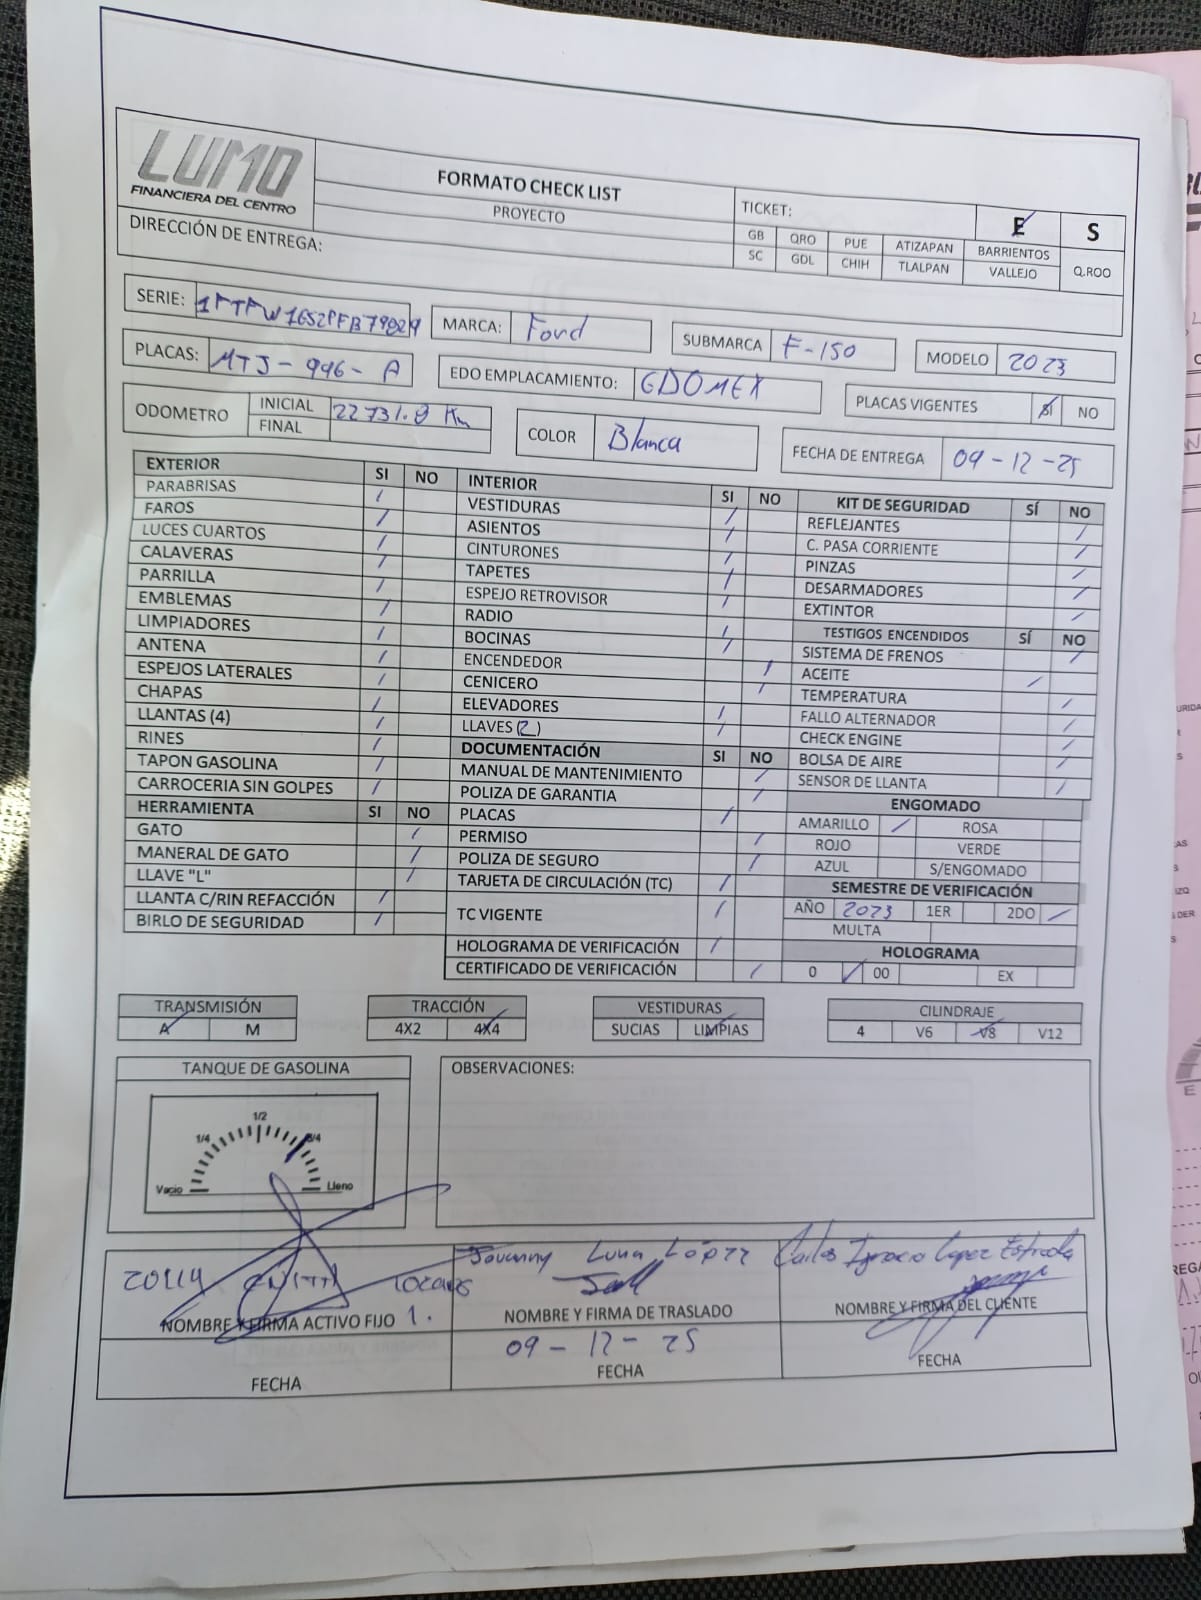 LUMO
FINANCIERA DEL CENTRO
FORMATO CHECK LIST
PROYECTO
TICKET:
E S
GB QRO PUE ATIZAPAN BARRIENTOS
SC GDL CHIH TLALPAN VALLEJO Q.ROO
DIRECCIÓN DE ENTREGA:
SERIE: MARCA: Ford SUBMARCA F-150 MODELO 2023
PLACAS: MTJ-946-A EDO EMPLACAMIENTO: EDOMEX PLACAS VIGENTES SI NO
ODOMETRO INICIAL 22731.8 Km
FINAL
COLOR Blanca FECHA DE ENTREGA 09-12-25
EXTERIOR SI NO
PARABRISAS /
FAROS /
LUCES CUARTOS /
CALAVERAS /
PARRILLA /
EMBLEMAS /
LIMPIADORES /
ANTENA /
ESPEJOS LATERALES /
CHAPAS /
LLANTAS (4) /
RINES /
TAPON GASOLINA /
CARROCERIA SIN GOLPES /
HERRAMIENTA SI NO
GATO /
MANERAL DE GATO /
LLAVE "L" /
LLANTA C/RIN REFACCIÓN /
BIRLO DE SEGURIDAD /
INTERIOR SI NO
VESTIDURAS /
ASIENTOS /
CINTURONES /
TAPETES /
ESPEJO RETROVISOR /
RADIO /
BOCINAS /
ENCENDEDOR /
CENICERO /
ELEVADORES /
LLAVES (2) /
DOCUMENTACIÓN SI NO
MANUAL DE MANTENIMIENTO /
POLIZA DE GARANTIA /
PLACAS /
PERMISO /
POLIZA DE SEGURO /
TARJETA DE CIRCULACIÓN (TC) /
TC VIGENTE /
HOLOGRAMA DE VERIFICACIÓN /
CERTIFICADO DE VERIFICACIÓN /
KIT DE SEGURIDAD SÍ NO
REFLEJANTES /
C. PASA CORRIENTE /
PINZAS /
DESARMADORES /
EXTINTOR /
TESTIGOS ENCENDIDOS SÍ NO
SISTEMA DE FRENOS /
ACEITE /
TEMPERATURA /
FALLO ALTERNADOR /
CHECK ENGINE /
BOLSA DE AIRE /
SENSOR DE LLANTA /
ENGOMADO
AMARILLO / ROSA
ROJO VERDE
AZUL S/ENGOMADO
SEMESTRE DE VERIFICACIÓN
AÑO 2023 1ER 2DO /
MULTA
HOLOGRAMA
0 / 00 EX
TRANSMISIÓN
A M
TRACCIÓN
4X2 4X4
VESTIDURAS
SUCIAS LIMPIAS
CILINDRAJE
4 V6 V8 V12
TANQUE DE GASOLINA
1/4 1/2 3/4
Vacio Lleno
OBSERVACIONES:
Jovanny Luna López
Carlos Ignacio Lopez Estrada
NOMBRE Y FIRMA ACTIVO FIJO
NOMBRE Y FIRMA DE TRASLADO
NOMBRE Y FIRMA DEL CLIENTE
09-12-25
FECHA
FECHA
FECHA